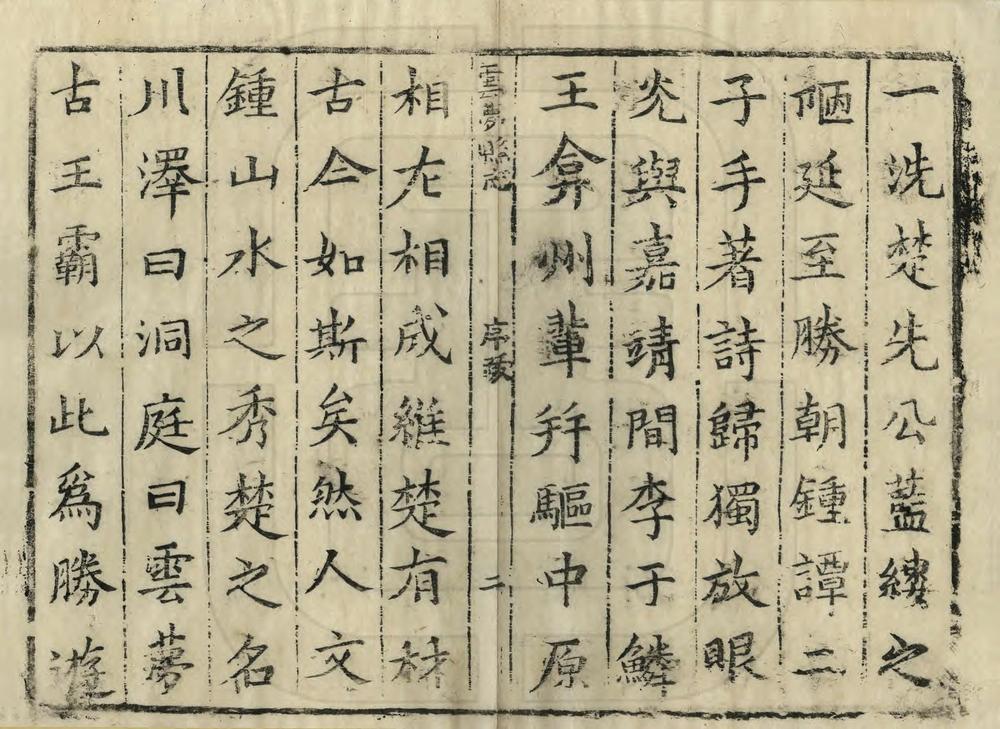 一洗楚先公藍縷之
陋延至勝朝鍾譚二
子手手著詩歸獨放眼
光與嘉靖間李于鱗
王弇州輩拜驅中原
雲夢縣志 序發 二
相左相成維楚有材
古今如斯矣然人文
鍾山水之秀楚之名
川澤曰洞庭曰雲夢
古王霸以此爲勝遊